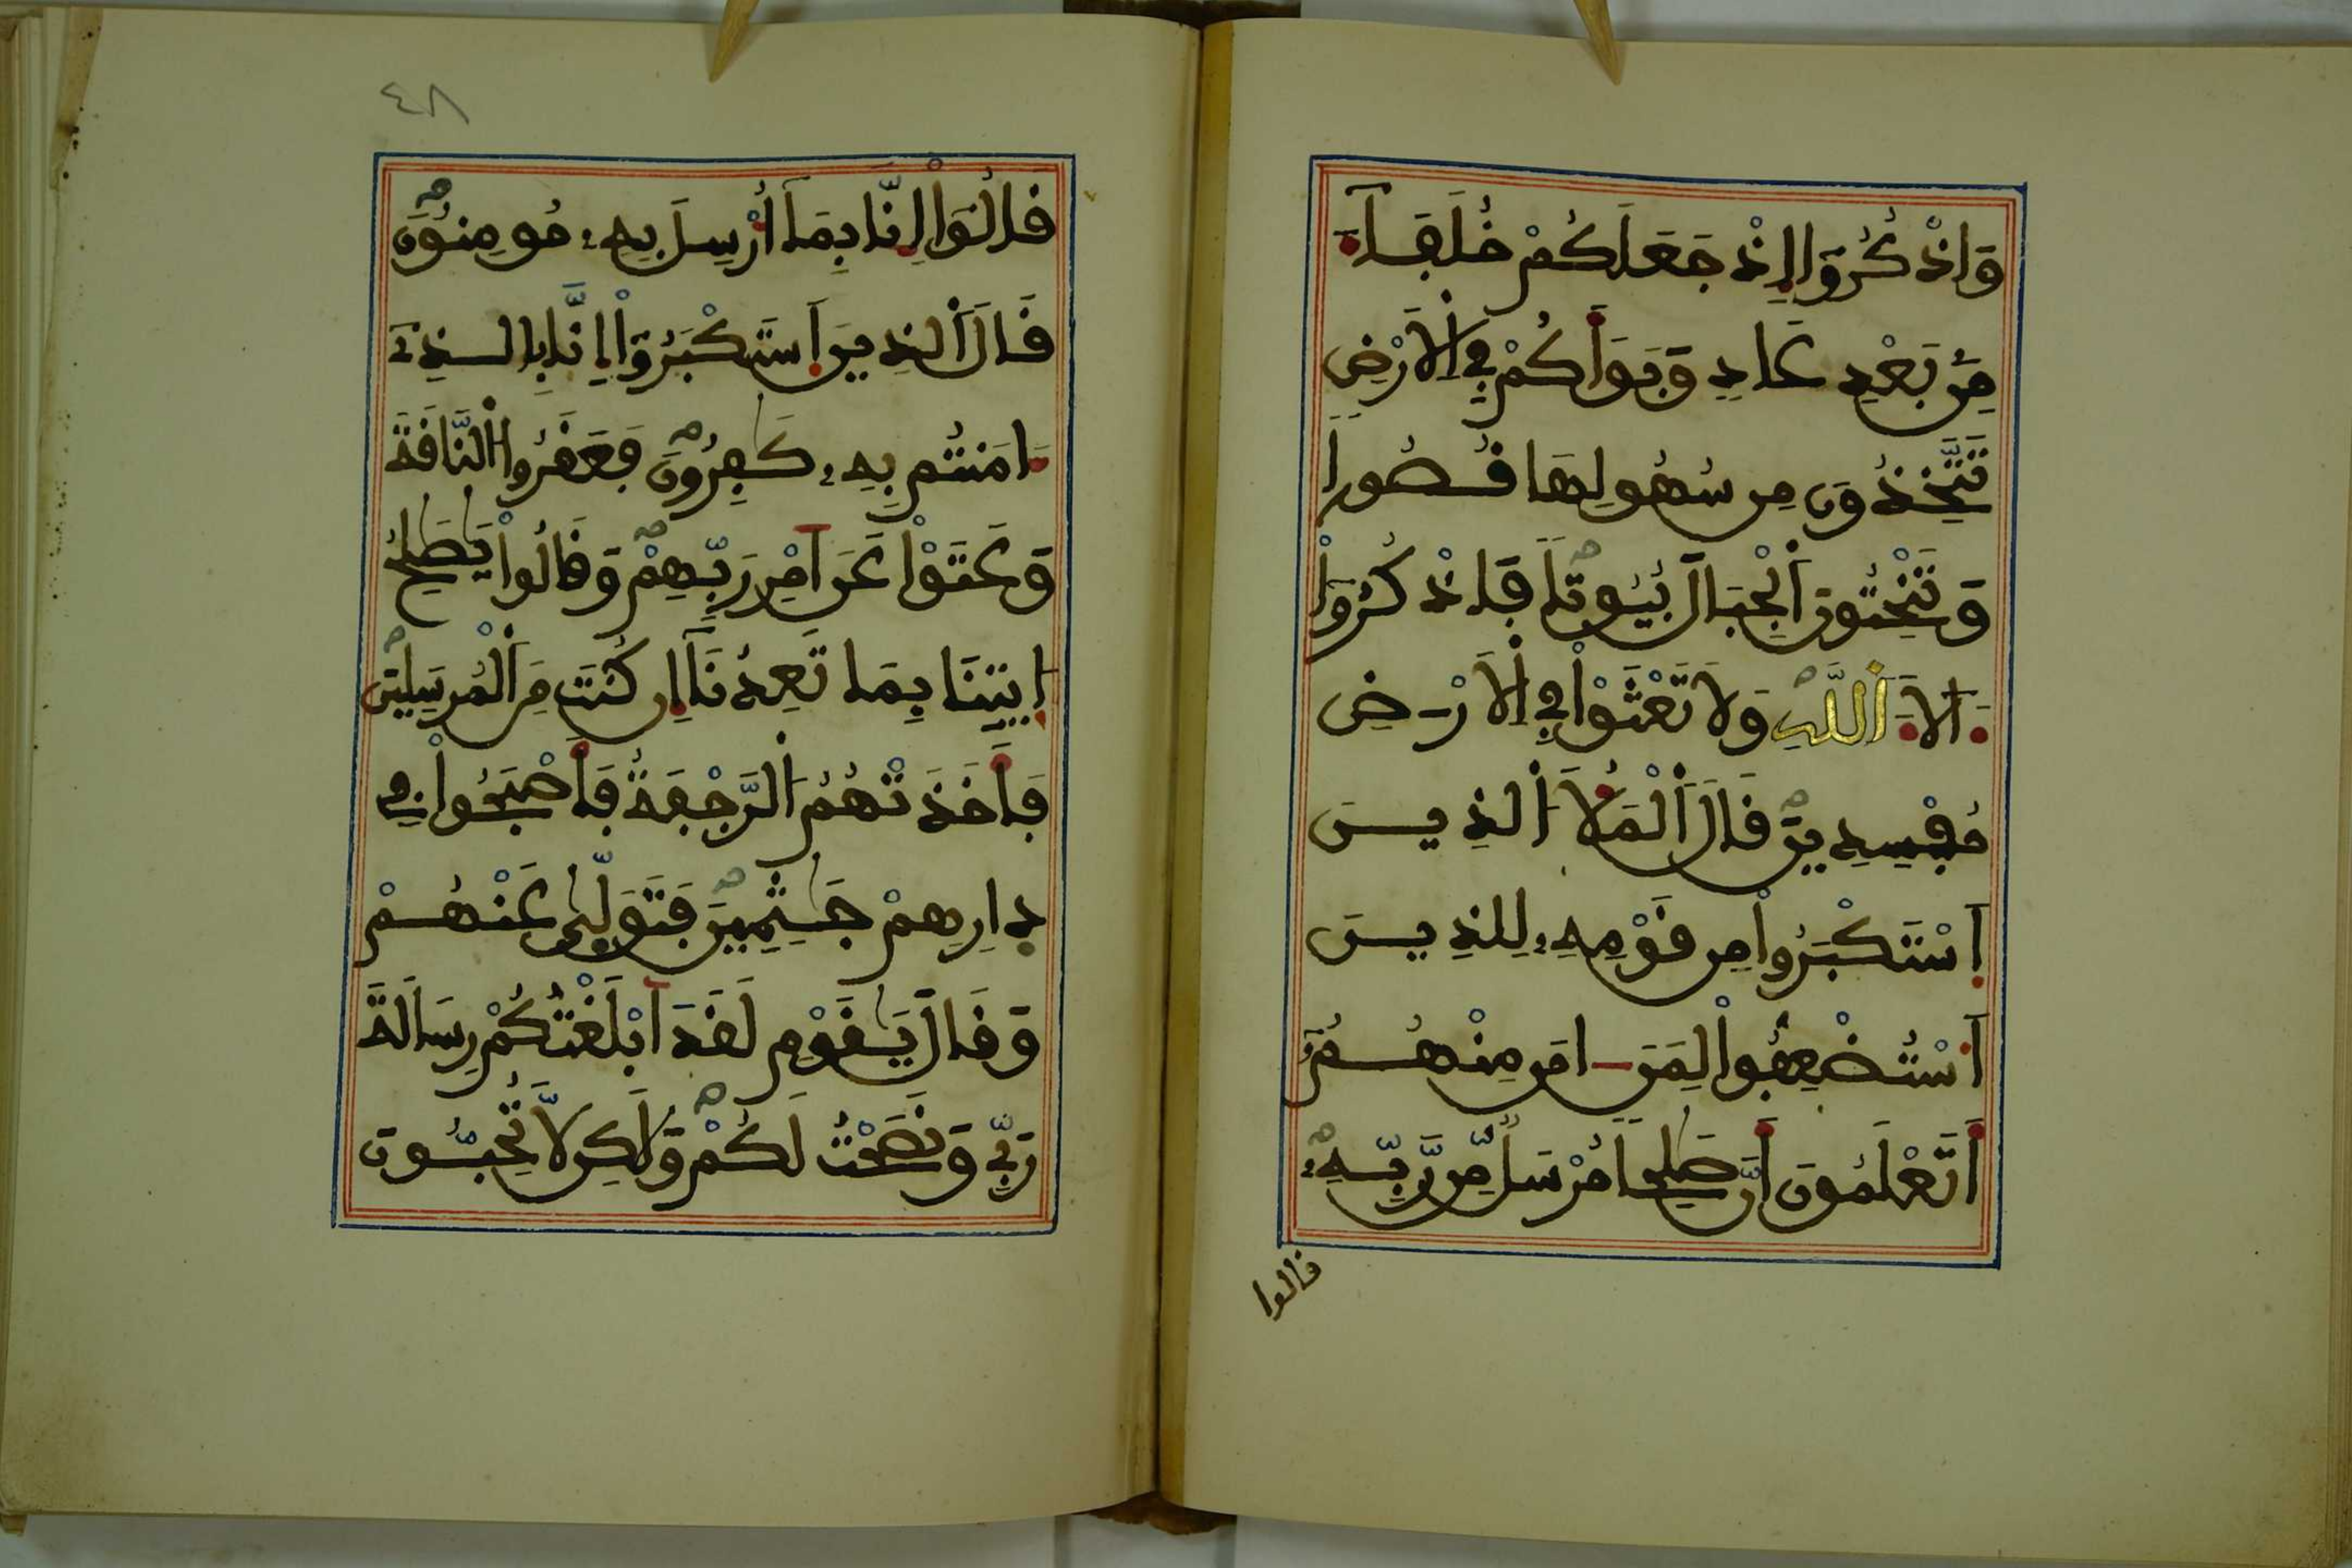 وَاذْكُرُوٓا۟ إِذْ جَعَلَكُمْ خُلَفَآءَ
مِنۢ بَعْدِ عَادٍ وَبَوَّأَكُمْ فِي اِ۬لَارْضِ
تَتَّخِذُونَ مِن سُهُولِهَا قُصُوراً
وَتَنْحِتُونَ اَ۬لْجِبَالَ بُيُوتاً فَاذْكُرُوٓا۟
ءَالَآءَ اَ۬للَّهِ وَلَا تَعْثَوْا۟ فِي اِ۬لَارْضِ
مُفْسِدِينَ قَالَ اَ۬لْمَلَأُ اُ۬لذِينَ
اَ۪سْتَكْبَرُوا۟ مِن قَوْمِهِۦ لِلذِينَ
اَ۟سْتُضْعِفُوا۟ لِمَنَ ـ امَنَ مِنْهُمُۥٓ
أَتَعْلَمُونَ أَنَّ صَٰلِحاً مُّرْسَلٌ مِّن رَّبِّهِۦ
قالوا
٤٨
قَالُوٓا۟ إِنَّا بِمَآ أُرْسِلَ بِهِۦ مُومِنُونَ
قَالَ اَ۬لذِينَ اَ۪سْتَكْبَرُوٓا۟ إِنَّا بِالذِےٓ
ءَامَنتُم بِهِۦ كَٰفِرُونَ فَعَقَرُوا۟ اُ۬لنَّاقَةَ
وَعَتَوْا۟ عَنَ اَمْرِ رَبِّهِمْ وَقَالُوا۟ يَٰصَٰلِحُ
اُ۪يتِنَا بِمَا تَعِدُنَآ إِن كُنتَ مِنَ اَ۬لْمُرْسَلِينَ
فَأَخَذَتْهُمُ اُ۬لرَّجْفَةُ فَأَصْبَحُوا۟ فِے
دِارِهِمْ جَٰثِمِينَ فَتَوَلَّىٰ عَنْهُمْ
وَقَالَ يَٰقَوْمِ لَقَدَ اَبْلَغْتُكُمْ رِسَالَةَ
رَبِّے وَنَصَحْتُ لَكُمْ وَلَٰكِن لَّا تُحِبُّونَ